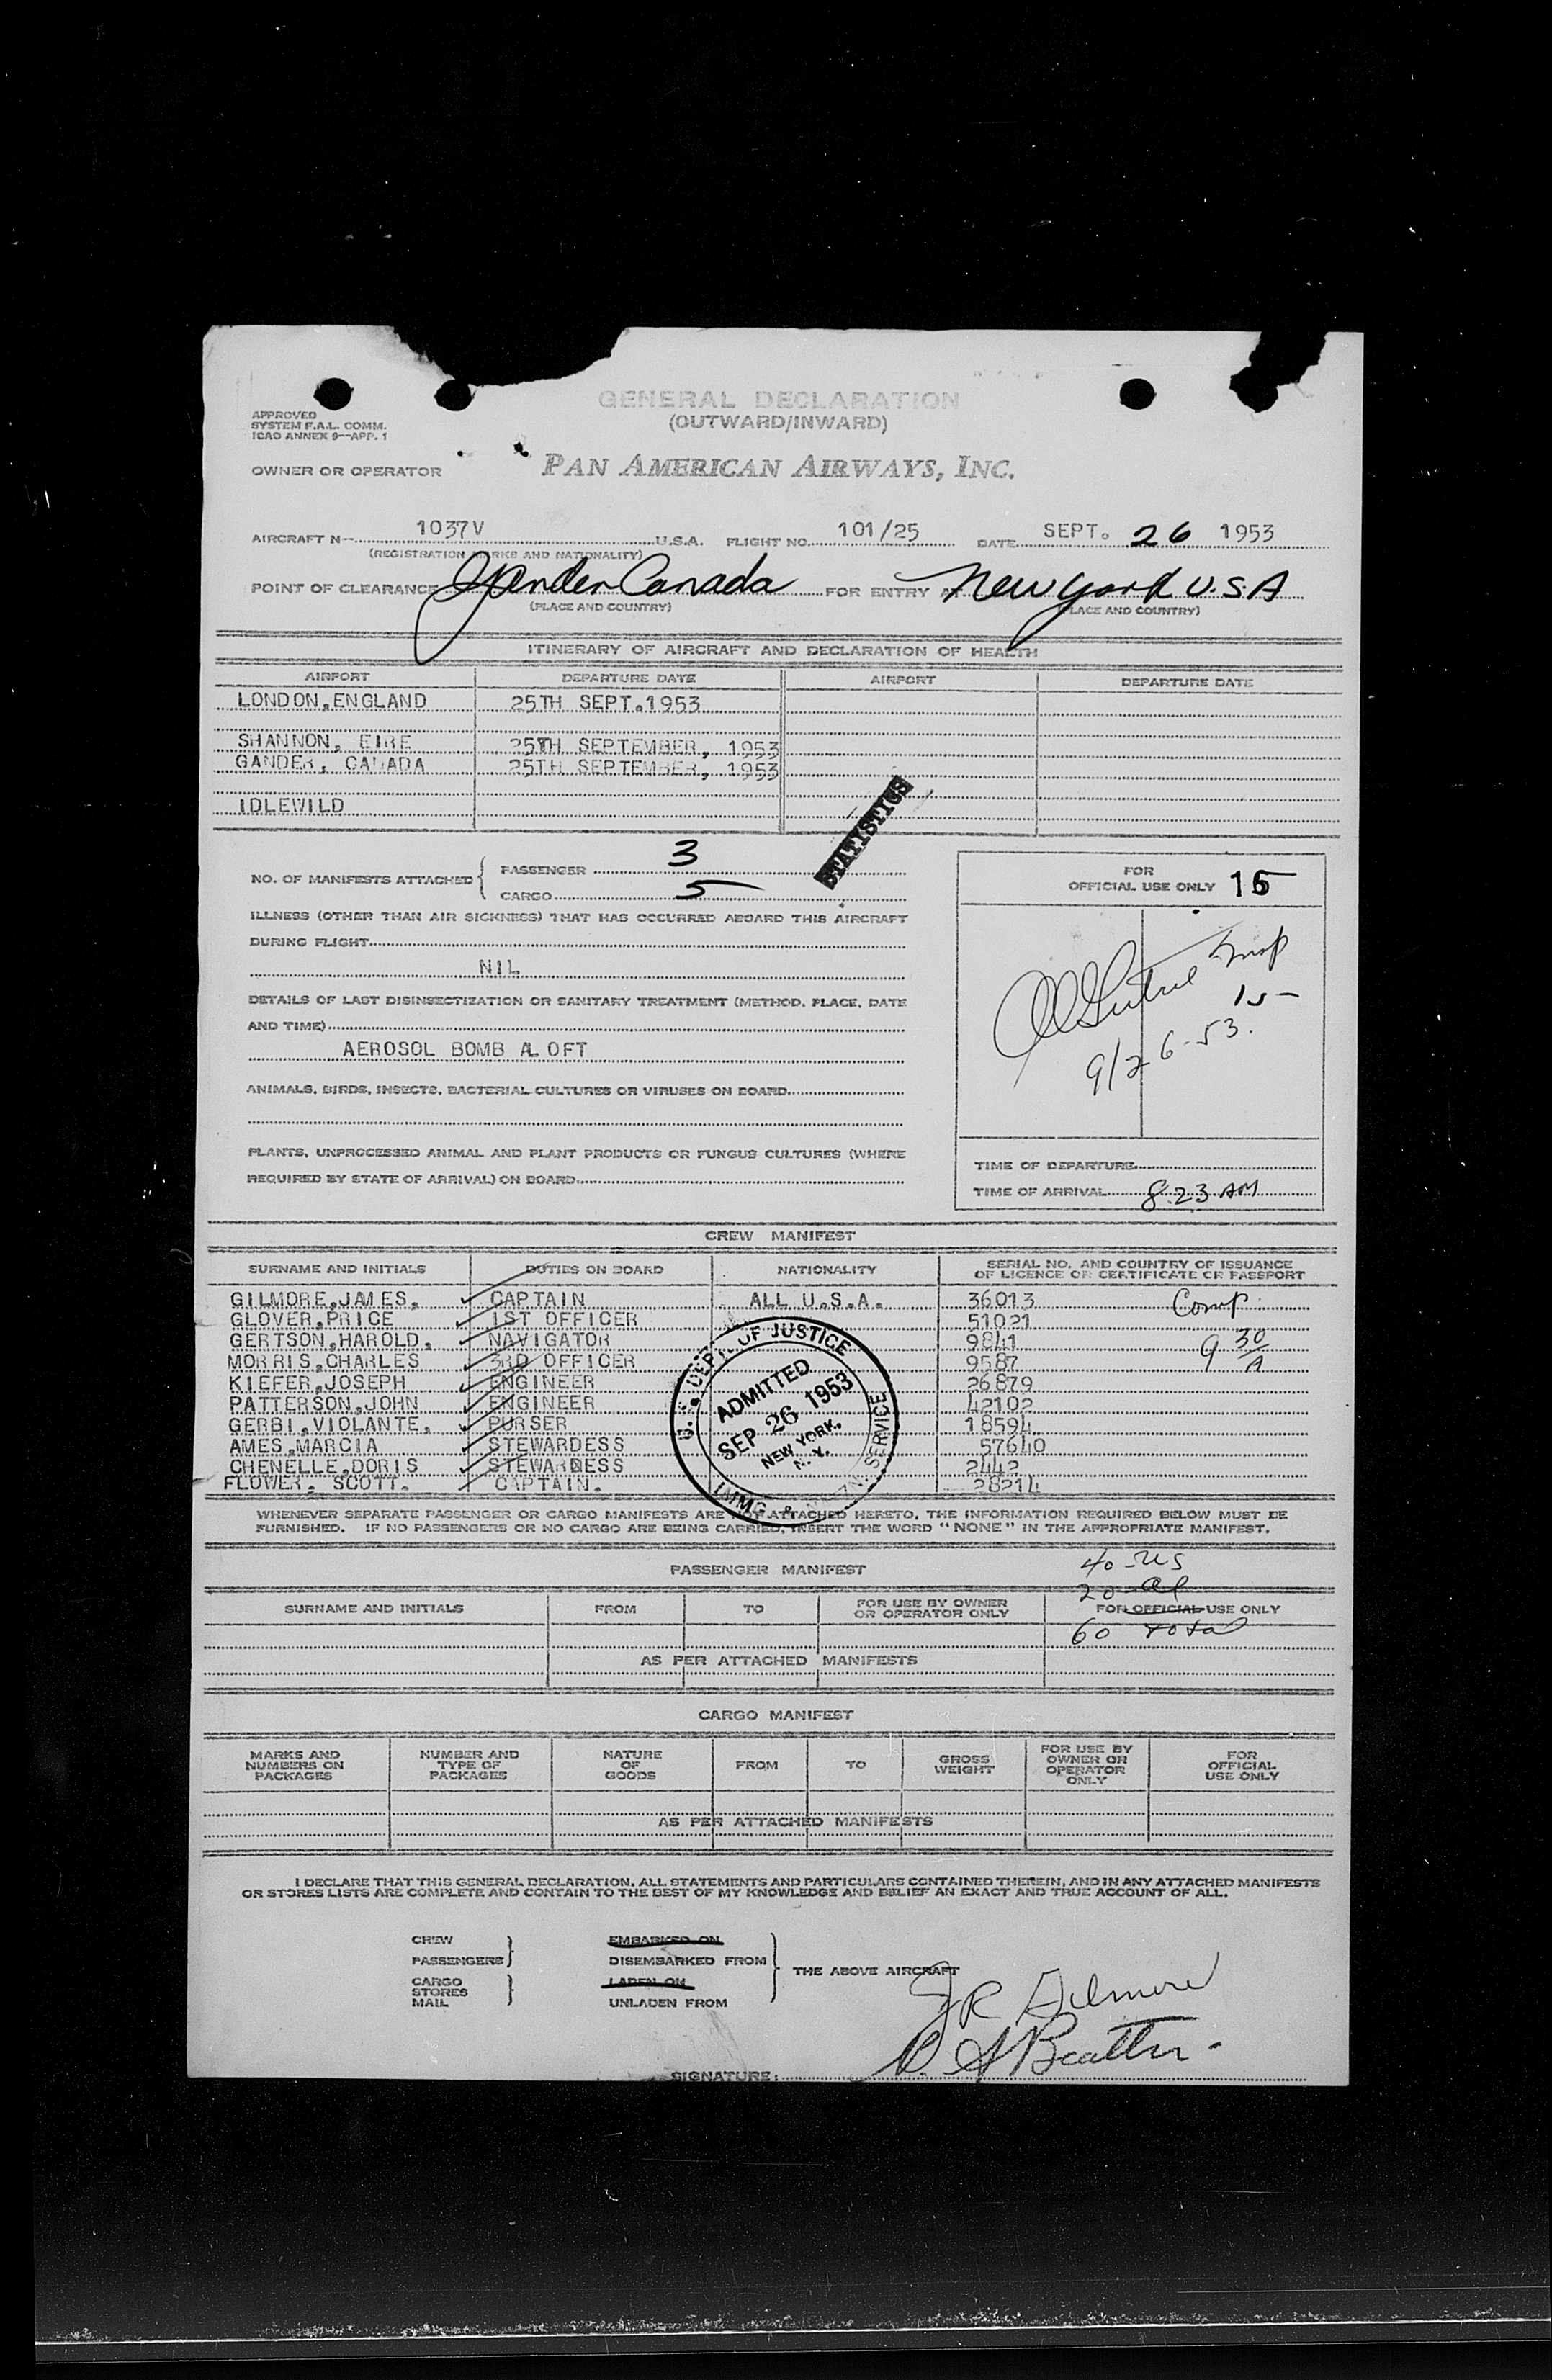 GENERAL DECLARATION
(OUTWARD/INWARD)
APPROVED
SYSTEM F.A.L. COMM.
ICAO ANNEX 9—APP. 1
OWNER OR OPERATOR PAN AMERICAN AIRWAYS, INC.
AIRCRAFT N— 1037V U.S.A. FLIGHT NO. 101/25 DATE SEPT. 26 1953
(REGISTRATION MARKS AND NATIONALITY)
POINT OF CLEARANCE Gander Canada FOR ENTRY AT New York U.S.A
(PLACE AND COUNTRY) (PLACE AND COUNTRY)
ITINERARY OF AIRCRAFT AND DECLARATION OF HEALTH
AIRPORT DEPARTURE DATE AIRPORT DEPARTURE DATE
LONDON, ENGLAND 25TH SEPT. 1953
SHANNON, EIRE 25TH SEPTEMBER, 1953
GANDER, CANADA 25TH SEPTEMBER, 1953
IDLEWILD
STATISTICS
NO. OF MANIFESTS ATTACHED { PASSENGER 3
CARGO 5
ILLNESS (OTHER THAN AIR SICKNESS) THAT HAS OCCURRED ABOARD THIS AIRCRAFT
DURING FLIGHT
NIL
DETAILS OF LAST DISINSECTIZATION OR SANITARY TREATMENT (METHOD, PLACE, DATE
AND TIME)
AEROSOL BOMB ALOFT
ANIMALS, BIRDS, INSECTS, BACTERIAL CULTURES OR VIRUSES ON BOARD
PLANTS, UNPROCESSED ANIMAL AND PLANT PRODUCTS OR FUNGUS CULTURES (WHERE
REQUIRED BY STATE OF ARRIVAL) ON BOARD
FOR
OFFICIAL USE ONLY 15
Insp
15-
9/26-53.
TIME OF DEPARTURE
TIME OF ARRIVAL 8.23 AM
CREW MANIFEST
SURNAME AND INITIALS DUTIES ON BOARD NATIONALITY SERIAL NO. AND COUNTRY OF ISSUANCE
OF LICENCE OR CERTIFICATE OR PASSPORT
GILMORE, JAMES. CAPTAIN ALL U.S.A. 36013 Comp.
GLOVER, PRICE 1ST OFFICER 51021
GERTSON, HAROLD. NAVIGATOR 9841 9 30/A
MORRIS, CHARLES 3RD OFFICER 9587
KIEFER, JOSEPH ENGINEER 26879
PATTERSON, JOHN ENGINEER 42102
GERBI, VIOLANTE. PURSER 18594
AMES, MARCIA STEWARDESS 57640
CHENELLE, DORIS STEWARDESS 2442
FLOWER, SCOTT. CAPTAIN. 28214
U.S. DEPT. OF JUSTICE
ADMITTED
SEP 26 1953
NEW YORK,
N.Y.
IMMG. & SERVICE
WHENEVER SEPARATE PASSENGER OR CARGO MANIFESTS ARE NOT ATTACHED HERETO, THE INFORMATION REQUIRED BELOW MUST BE
FURNISHED. IF NO PASSENGERS OR NO CARGO ARE BEING CARRIED, INSERT THE WORD "NONE" IN THE APPROPRIATE MANIFEST.
PASSENGER MANIFEST
40 - US
20 - al
60 total
SURNAME AND INITIALS FROM TO FOR USE BY OWNER
OR OPERATOR ONLY FOR OFFICIAL USE ONLY
AS PER ATTACHED MANIFESTS
CARGO MANIFEST
MARKS AND
NUMBERS ON
PACKAGES
NUMBER AND
TYPE OF
PACKAGES
NATURE
OF
GOODS
FROM
TO
GROSS
WEIGHT
FOR USE BY
OWNER OR
OPERATOR
ONLY
FOR
OFFICIAL
USE ONLY
AS PER ATTACHED MANIFESTS
I DECLARE THAT THIS GENERAL DECLARATION, ALL STATEMENTS AND PARTICULARS CONTAINED THEREIN, AND IN ANY ATTACHED MANIFESTS
OR STORES LISTS ARE COMPLETE AND CONTAIN TO THE BEST OF MY KNOWLEDGE AND BELIEF AN EXACT AND TRUE ACCOUNT OF ALL.
CREW EMBARKED ON
PASSENGERS DISEMBARKED FROM
CARGO
STORES LADEN ON
MAIL UNLADEN FROM
THE ABOVE AIRCRAFT
JR Gilmore
SIGNATURE: